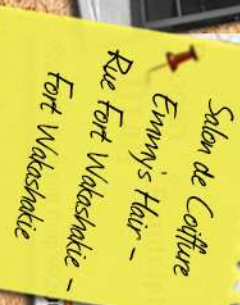 Salon de Coiffure
Emmy's Hair -
Rue Fort Wakoshakie -
Fort Wakoshakie